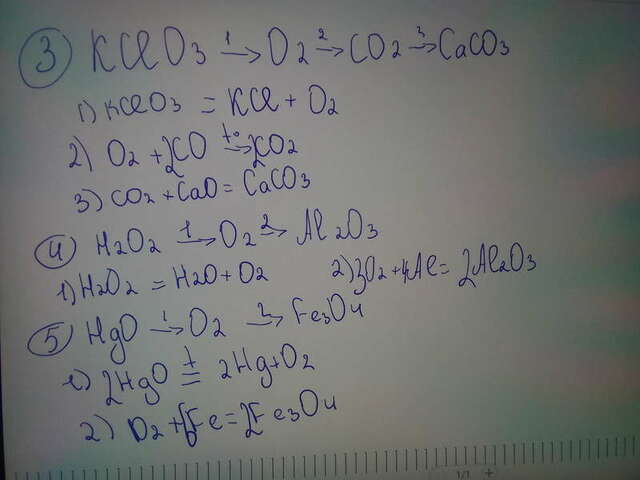 3 KClO3 1→ O2 2→ CO2 3→ CaCO3
1) KClO3 = KCl + O2
2) O2 + 2CO t°→ 2CO2
3) CO2 + CaO = CaCO3
4 H2O2 1→ O2 2→ Al2O3
1) H2O2 = H2O + O2 2) 3O2 + 4Al = 2Al2O3
5 HgO 1→ O2 2→ Fe3O4
1) 2HgO t= 2Hg + O2
2) O2 + 6Fe = 2Fe3O4